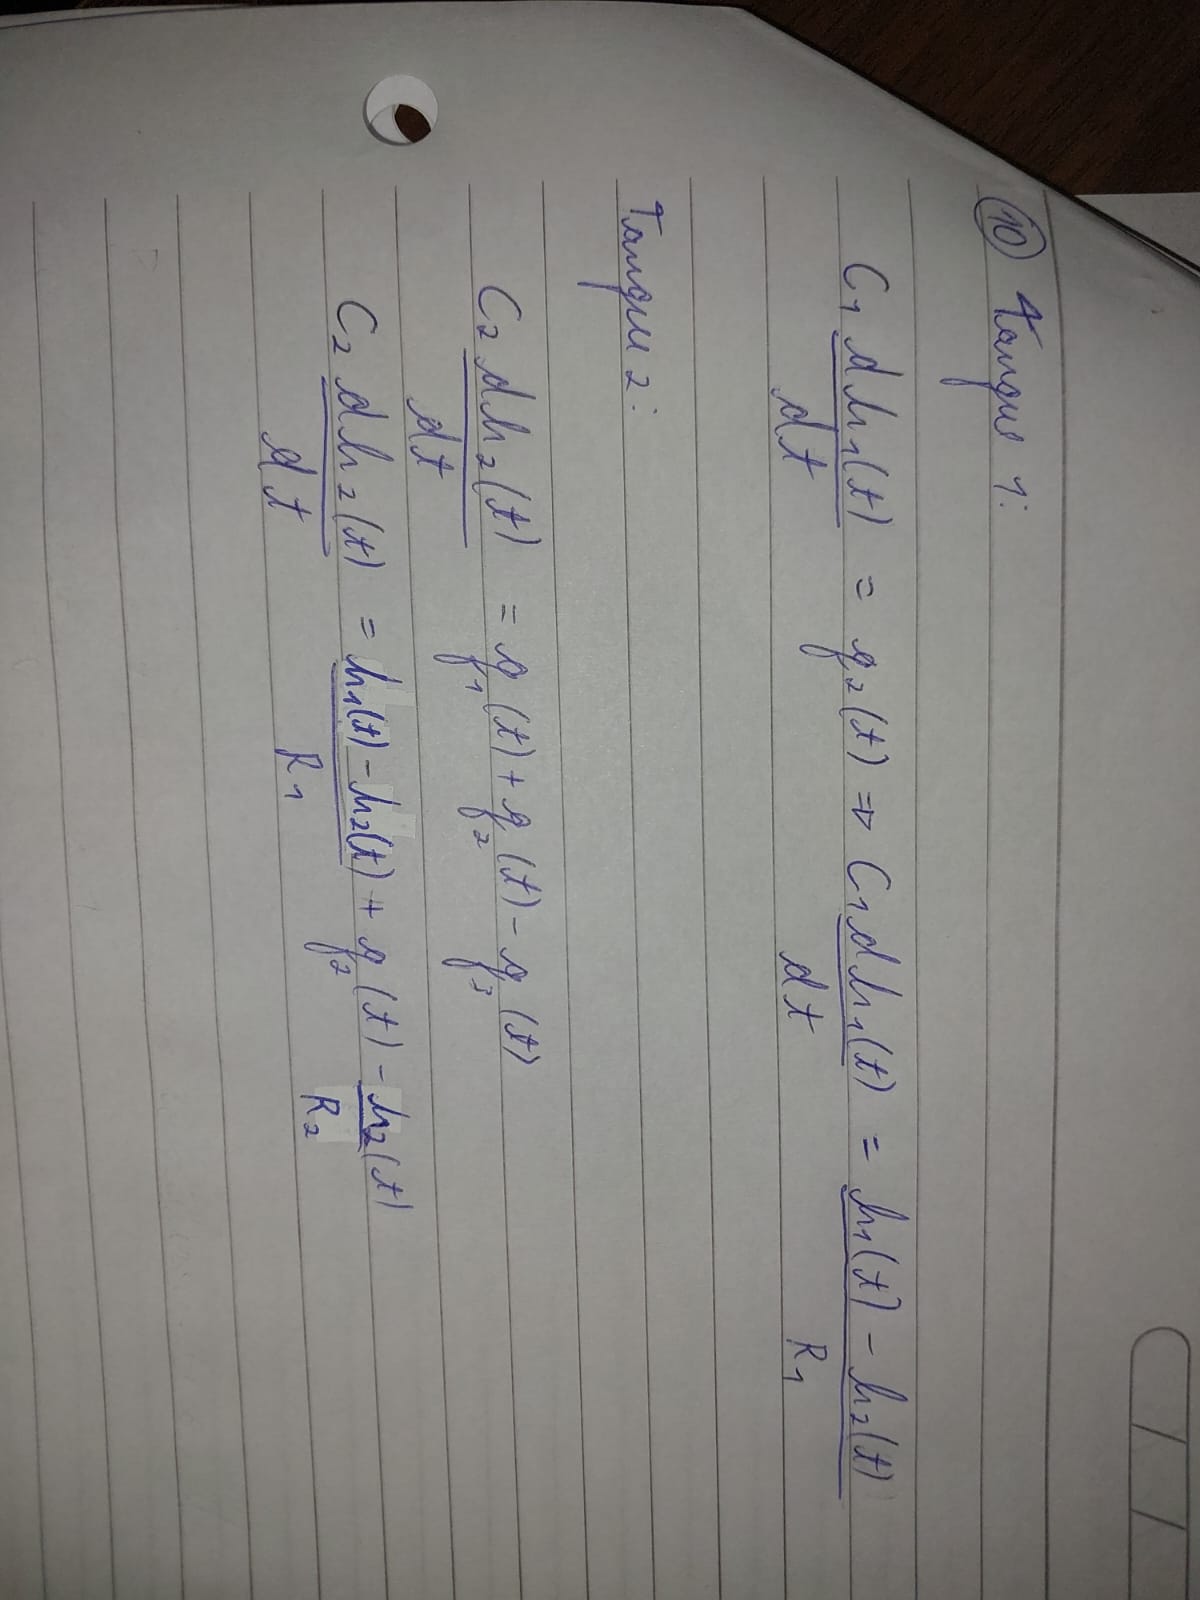 10 Tanque 1:
C₁ dh₁(t)/dt = q₂(t) => C₁ dh₁(t)/dt = h₁(t) - h₂(t)/R₁
Tanque 2:
C₂ dh₂(t)/dt = q₁(t) + q₂(t) - q₃(t)
C₂ dh₂(t)/dt = h₁(t) - h₂(t)/R₁ + q₂(t) - h₂(t)/R₂